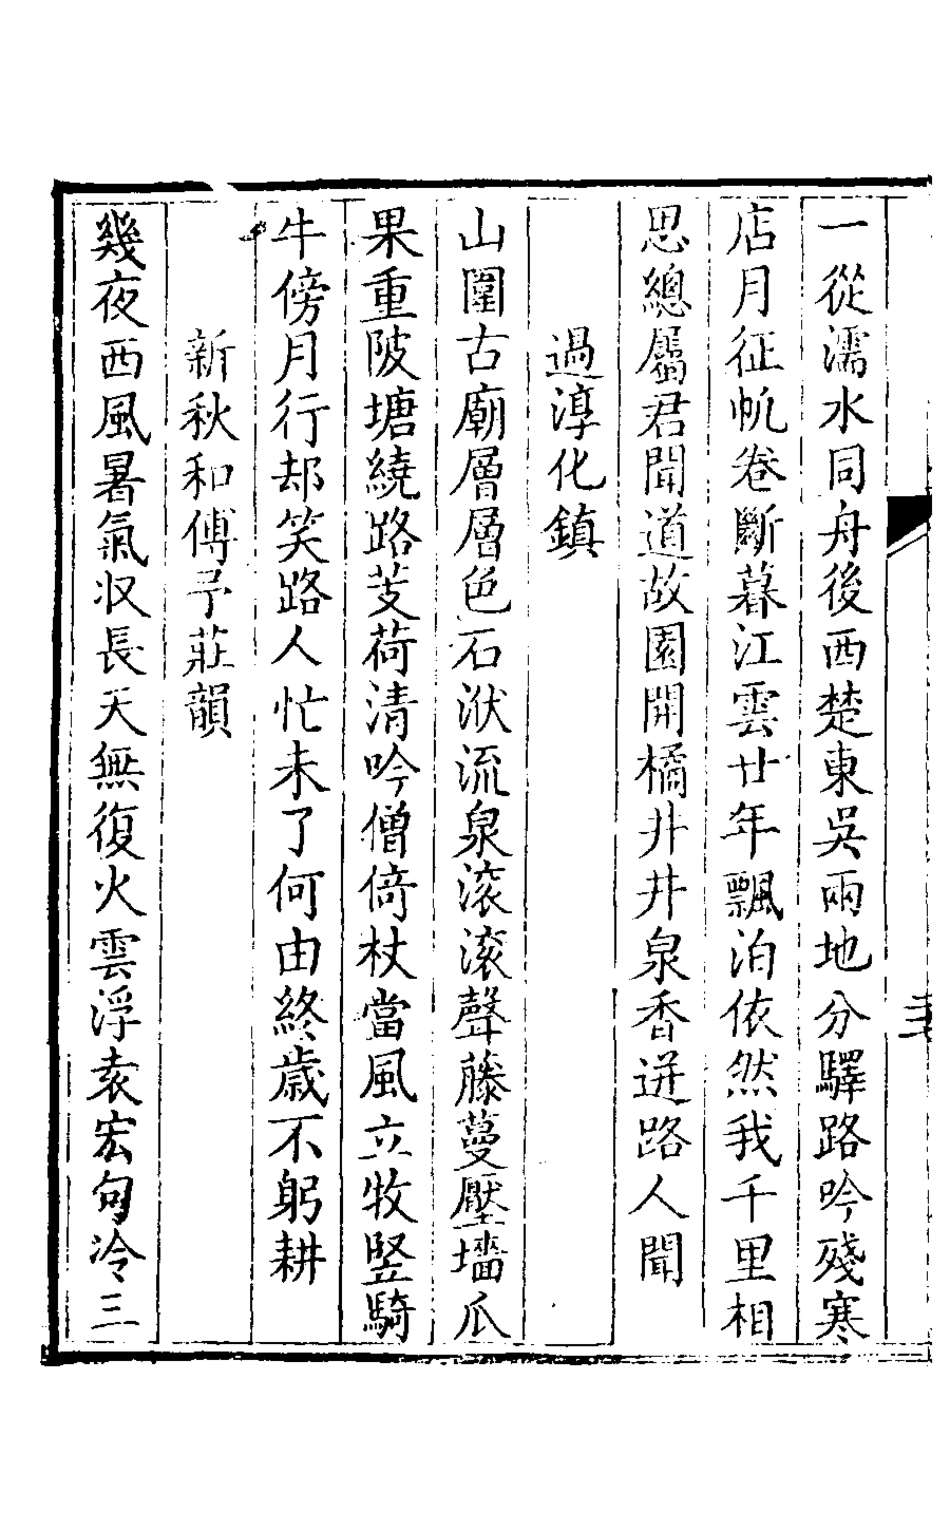 一從濡水同舟後西楚東吳兩地分驛路吟殘寒
店月征帆卷斷暮江雲廿年飄泊依然我千里相
思總屬君聞道故園開橘井井泉香迸路人聞
過淳化鎮
山圍古廟層層色石洑流泉滚滚聲藤蔓壓墻瓜
果重陂塘繞路芰荷清吟僧倚杖當風立牧竪騎
牛傍月行却笑路人忙未了何由終歲不躬耕
新秋和傅予莊韻
幾夜西風暑氣収長天無復火雲浮袁宏句冷三